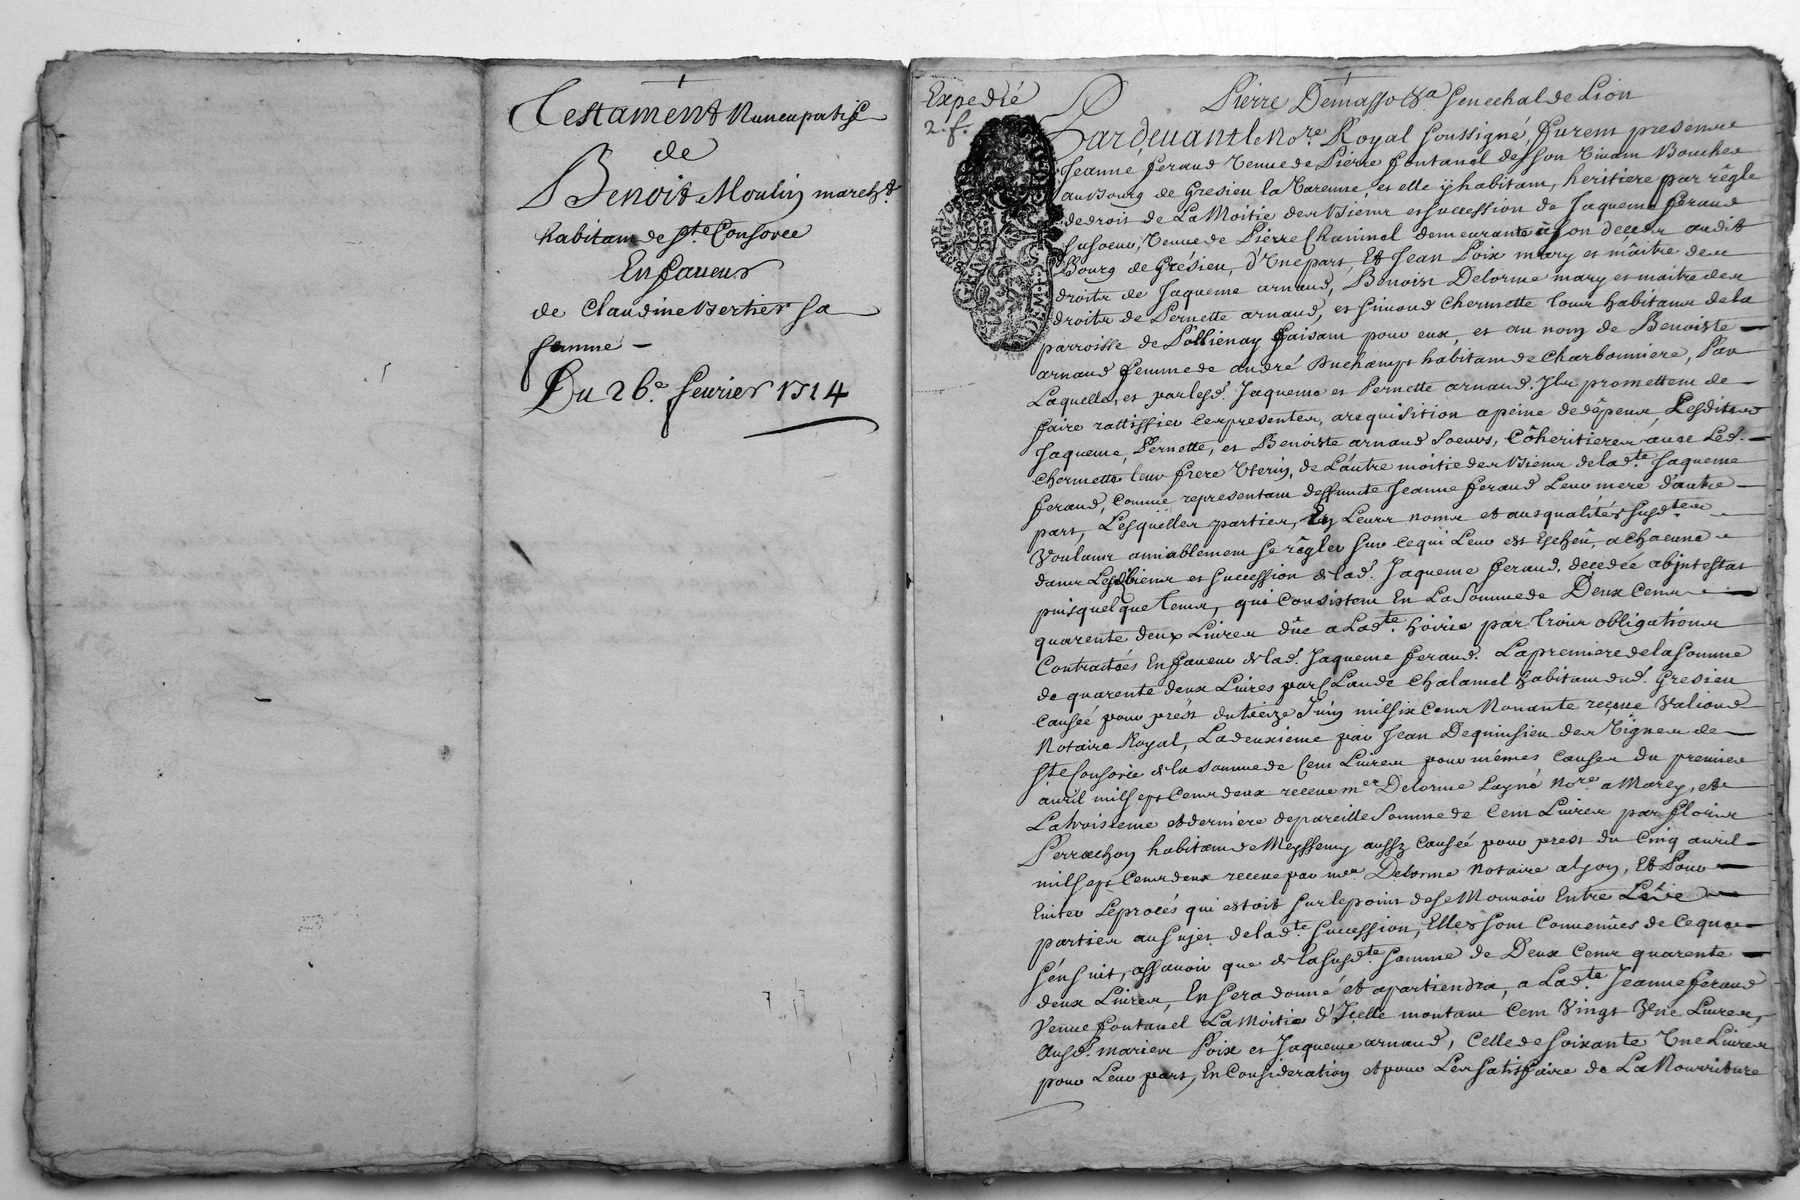 Testament Nuncupatif
de
Benoist Moulin march.d
habitant de Ste. Consorce
En faueur
de Claudine Bertier sa
femme -
Du 26.e feurier 1714
Expedié
2. f.
Pierre Demasso &a Senechal de Lion
Pardeuant le no.re Royal soussigné, furent presents
Jeanne feraud veuue de Pierre fontanel de son viuant Boucher
au Bourg de Gresieu la Varenne et elle ÿ habitant, heritiere par règle
de droit de La Moitié des Biens et succession de Jaqueme feraud
sa soeur, veuue de Pierre Chaninel demeurante à son deces audit
Bourg de Grésieu, d'Vne part, Et Jean Poix mary et maitre des
droits de Jaqueme arnaud, Benoist Delorme mary et maitre des
droits de Pernette arnaud, et Simond Chermette tous habitans de la
parroisse de Pollienay faisant pour eux, et au nom de Benoiste
arnaud femme de andré Duchamps habitant de Charbonniere, Par
Laquelle, et par lesd. Jaqueme et Pernette arnaud Ils promettent de
faire rattiffier ces presentes, a requisition a peine de dépens, Lesdites
Jaqueme, Pernette, et Benoiste arnaud soeurs, Côheritieres auec Led.
Chermette leur frere Vterin, de L'autre moitié des Biens de lad.te Jaqueme
feraud, comme representant deffunte Jeanne feraud Leur mere d'autre
part, Lesquelles parties, En Leurs noms et ausqualités susd.tes
Voulans amiablement se régler sur ce qui Leur est Escheû, a chacune
dans Lesd. biens et succession de lad. Jaqueme feraud, decedée abjntestat
puis quelque tems, qui consistent En La Somme de Deux Cens
quarente deux Liures dûe a Lad.te hoirie par trois obligations
Contractées En faueur de lad. Jaqueme feraud. La premiere de la somme
de quarente deux Liures par Claude Chalamel habitant dud. Gresieu
causée pour prést du treize Juin mil six cens Nonante reçeue Valioud
Notaire Royal, La deuxieme par Jean Dequinsieu des Vignes de
Ste Consorce de la somme de Cent Liures pour mêmes causes du premier
avril mil sept cens deux receue m.er Delorme Layné no.re a Marcy, et
La troisieme et derniere de pareille somme de Cent Liures par floris
Perrachon habitant de Meyssemy aussy causée pour prest du cinq auril
mil sept cens deux receue par m.e Delorme notaire a Lyon, Et Pour
Euiter Le procés qui estoit sur le point de se Mouuoir Entre
parties au sujet de lad.te succession, Elles sont conuenües de ce que
s'ensuit, assauoir que de la susd.te somme de Deux Cens quarente
deux Liures, En sera donné et apartiendra, a Lad.te Jeanne feraud
Veuue fontanel La Moitié d'Icelle montant Cent Vingt Vne Liures,
Ausd. mariés Poix et Jaqueme arnaud, Celle de soixante Vne Liures
pour Leur part, En Consideration et pour Les satisfaire de La Nourriture